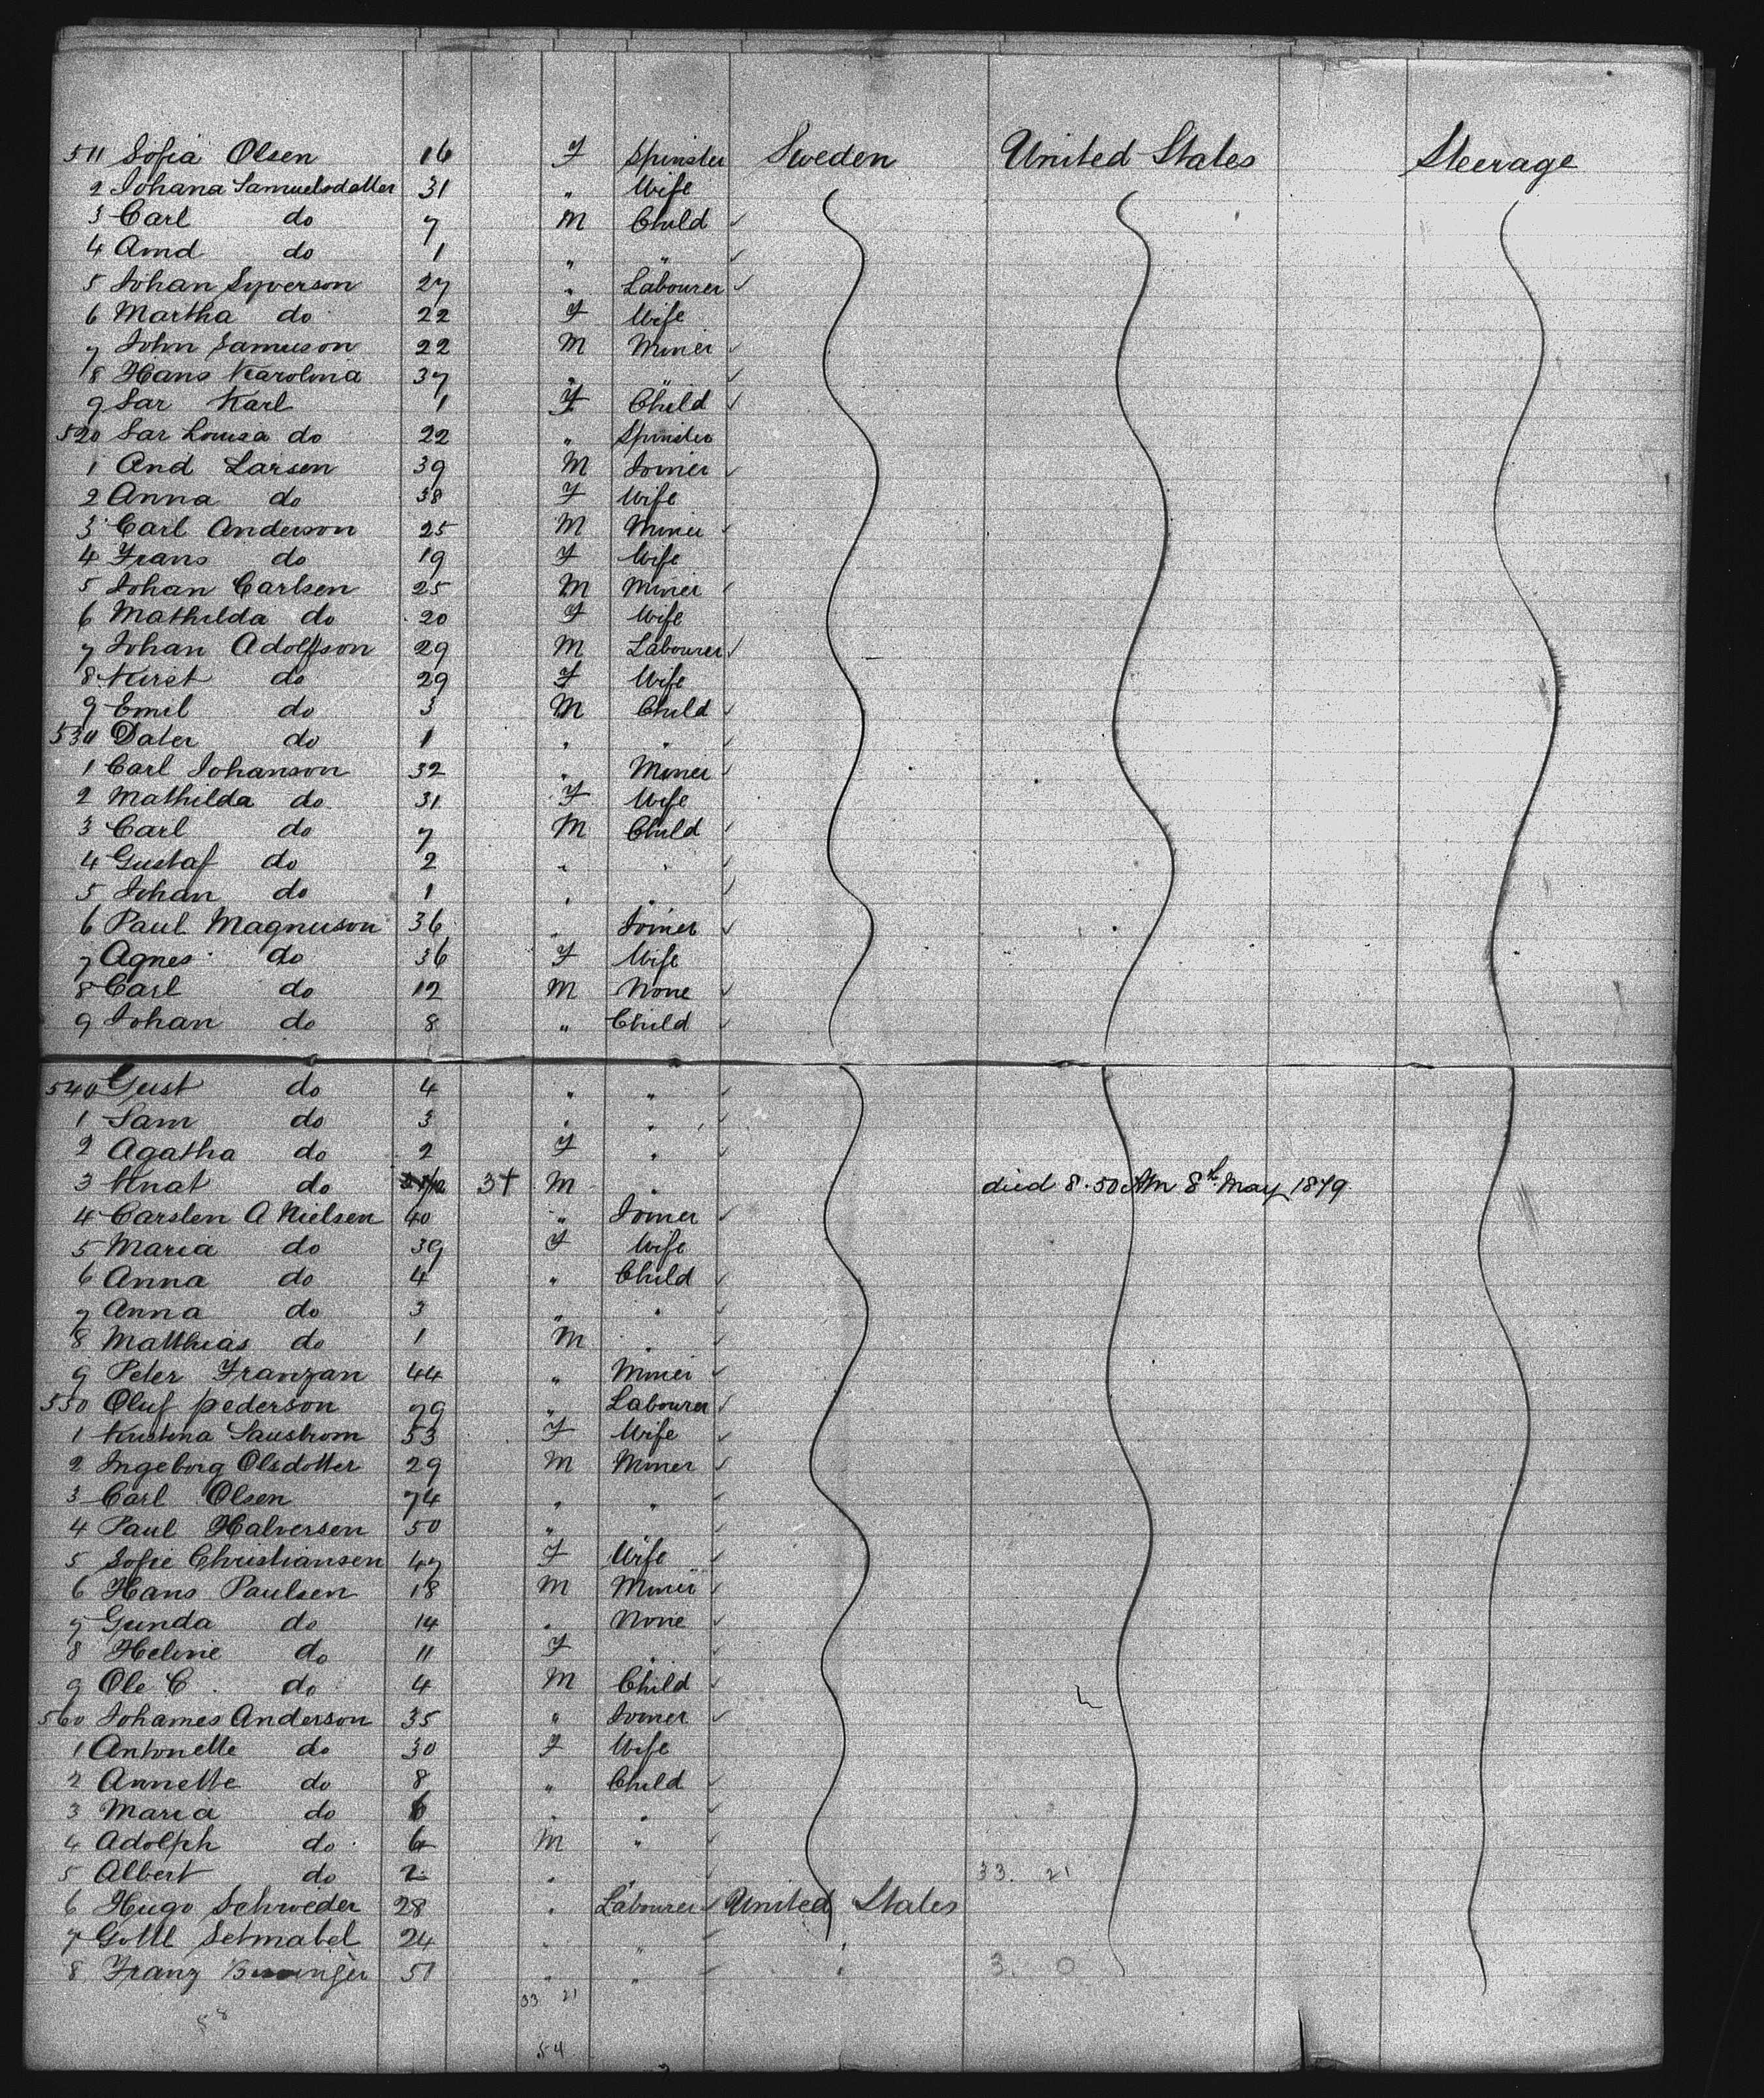 511 Sofia Olsen 16 F Spinster Sweden United States Steerage
2 Johana Samuelsdatter 31 " Wife
3 Carl do 7 M Child ✓
4 Amd do 1 " " ✓
5 Johan Syverson 27 " Labourer ✓
6 Martha do 22 F Wife
7 John Samuson 22 M Miner ✓
8 Hans Karolina 37 " " ✓
9 Sar Karl 1 F Child ✓
520 Sar Louisa do 22 " Spinster
1 And Larsen 39 M Joiner ✓
2 Anna do 38 F Wife
3 Carl Anderson 25 M Miner ✓
4 Frans do 19 F Wife
5 Johan Carlsen 25 M Miner ✓
6 Mathilda do 20 F Wife
7 Johan Adolfson 29 M Labourer ✓
8 Kirst do 29 F Wife
9 Emil do 3 M Child ✓
530 Dater do 1 " " ✓
1 Carl Johanson 32 " Miner ✓
2 Mathilda do 31 F Wife
3 Carl do 7 M Child ✓
4 Gustaf do 2 " " ✓
5 Johan do 1 " " ✓
6 Paul Magnuson 36 " Joiner ✓
7 Agnes do 36 F Wife
8 Carl do 12 M None ✓
9 Johan do 8 " Child ✓
540 Gust do 4 " " ✓
1 Sam do 3 " " ✓
2 Agatha do 2 F " ✓
3 Knat do 3+ M " died 8.50 AM 8th May 1879
4 Carsten A Nielsen 40 " Joiner ✓
5 Maria do 39 F Wife
6 Anna do 4 " Child ✓
7 Anna do 3 " " ✓
8 Matthias do 1 M " ✓
9 Peter Franzan 44 " Miner ✓
550 Oluf pederson 79 " Labourer ✓
1 Kristina Saustrom 53 F Wife ✓
2 Ingeborg Olsdotter 29 M Miner ✓
3 Carl Olsen 74 " " ✓
4 Paul Halversen 50 " " ✓
5 Sofie Christiansen 47 F Wife ✓
6 Hans Paulsen 18 M Miner ✓
7 Gunda do 14 " None ✓
8 Heline do 11 F " ✓
9 Ole C. do 4 M Child ✓
560 Johames Anderson 35 " Joiner ✓
1 Antonette do 30 F Wife
2 Annette do 8 " Child ✓
3 Maria do 6 " " ✓
4 Adolph do 4 M " ✓
5 Albert do 2 " " ✓ 33. 21
6 Hugo Schroeder 28 " Labourer ✓ United States
7 Gottl Schnabel 24 " " ✓ "
8 Franz 51 " " ✓ " 3. 0
33 21
58
54